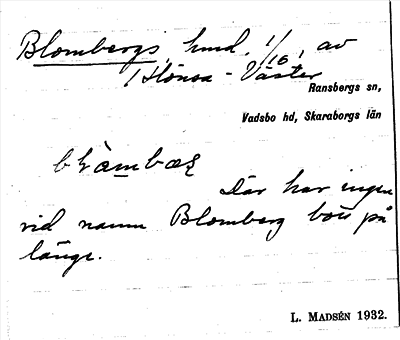 Blombergs, hmd, 1/16, av
1 Hönsa - Väster
Ransbergs sn,
Vadsbo hd, Skaraborgs län
Där har ingen
vid namn Blomberg bott på
länge.
L. MADSÉN 1932.